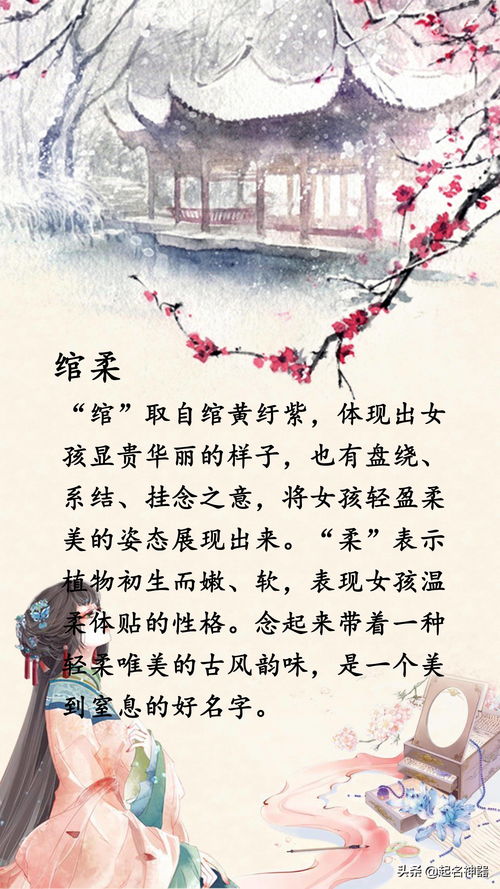 绾柔
“绾”取自绾黄纡紫，体现出女
孩显贵华丽的样子，也有盘绕、
系结、挂念之意，将女孩轻盈柔
美的姿态展现出来。“柔”表示
植物初生而嫩、软，表现女孩温
柔体贴的性格。念起来带着一种
轻柔唯美的古风韵味，是一个美
到窒息的好名字。
头条@起名神器